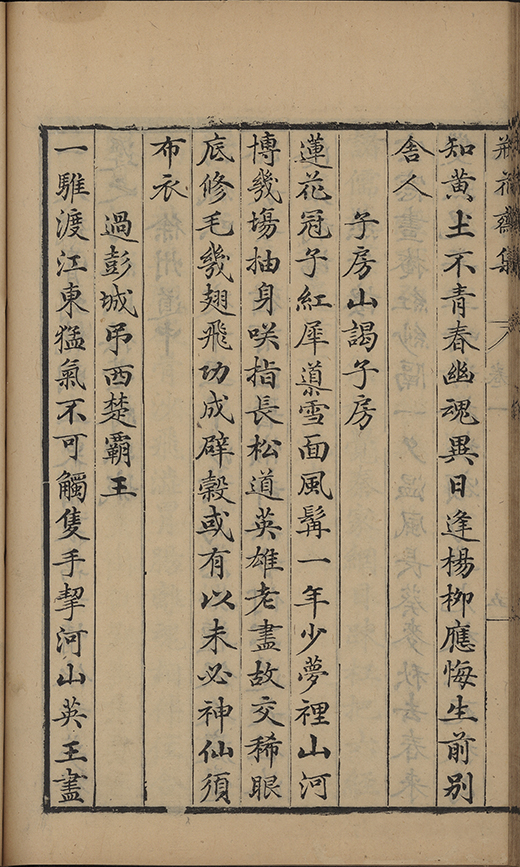 知黄土不青春幽魂異日逢楊柳應悔生前别
舍人
子房山謁子房
蓮花冠子紅犀導雪面風髯一年少夢裡山河
博幾塲抽身咲指長松道英雄老盡故交稀眼
底修毛幾翅飛功成辟穀或有以未必神仙須
布衣
過彭城吊西楚霸王
一騅渡江東猛氣不可觸隻手挈河山英王盡